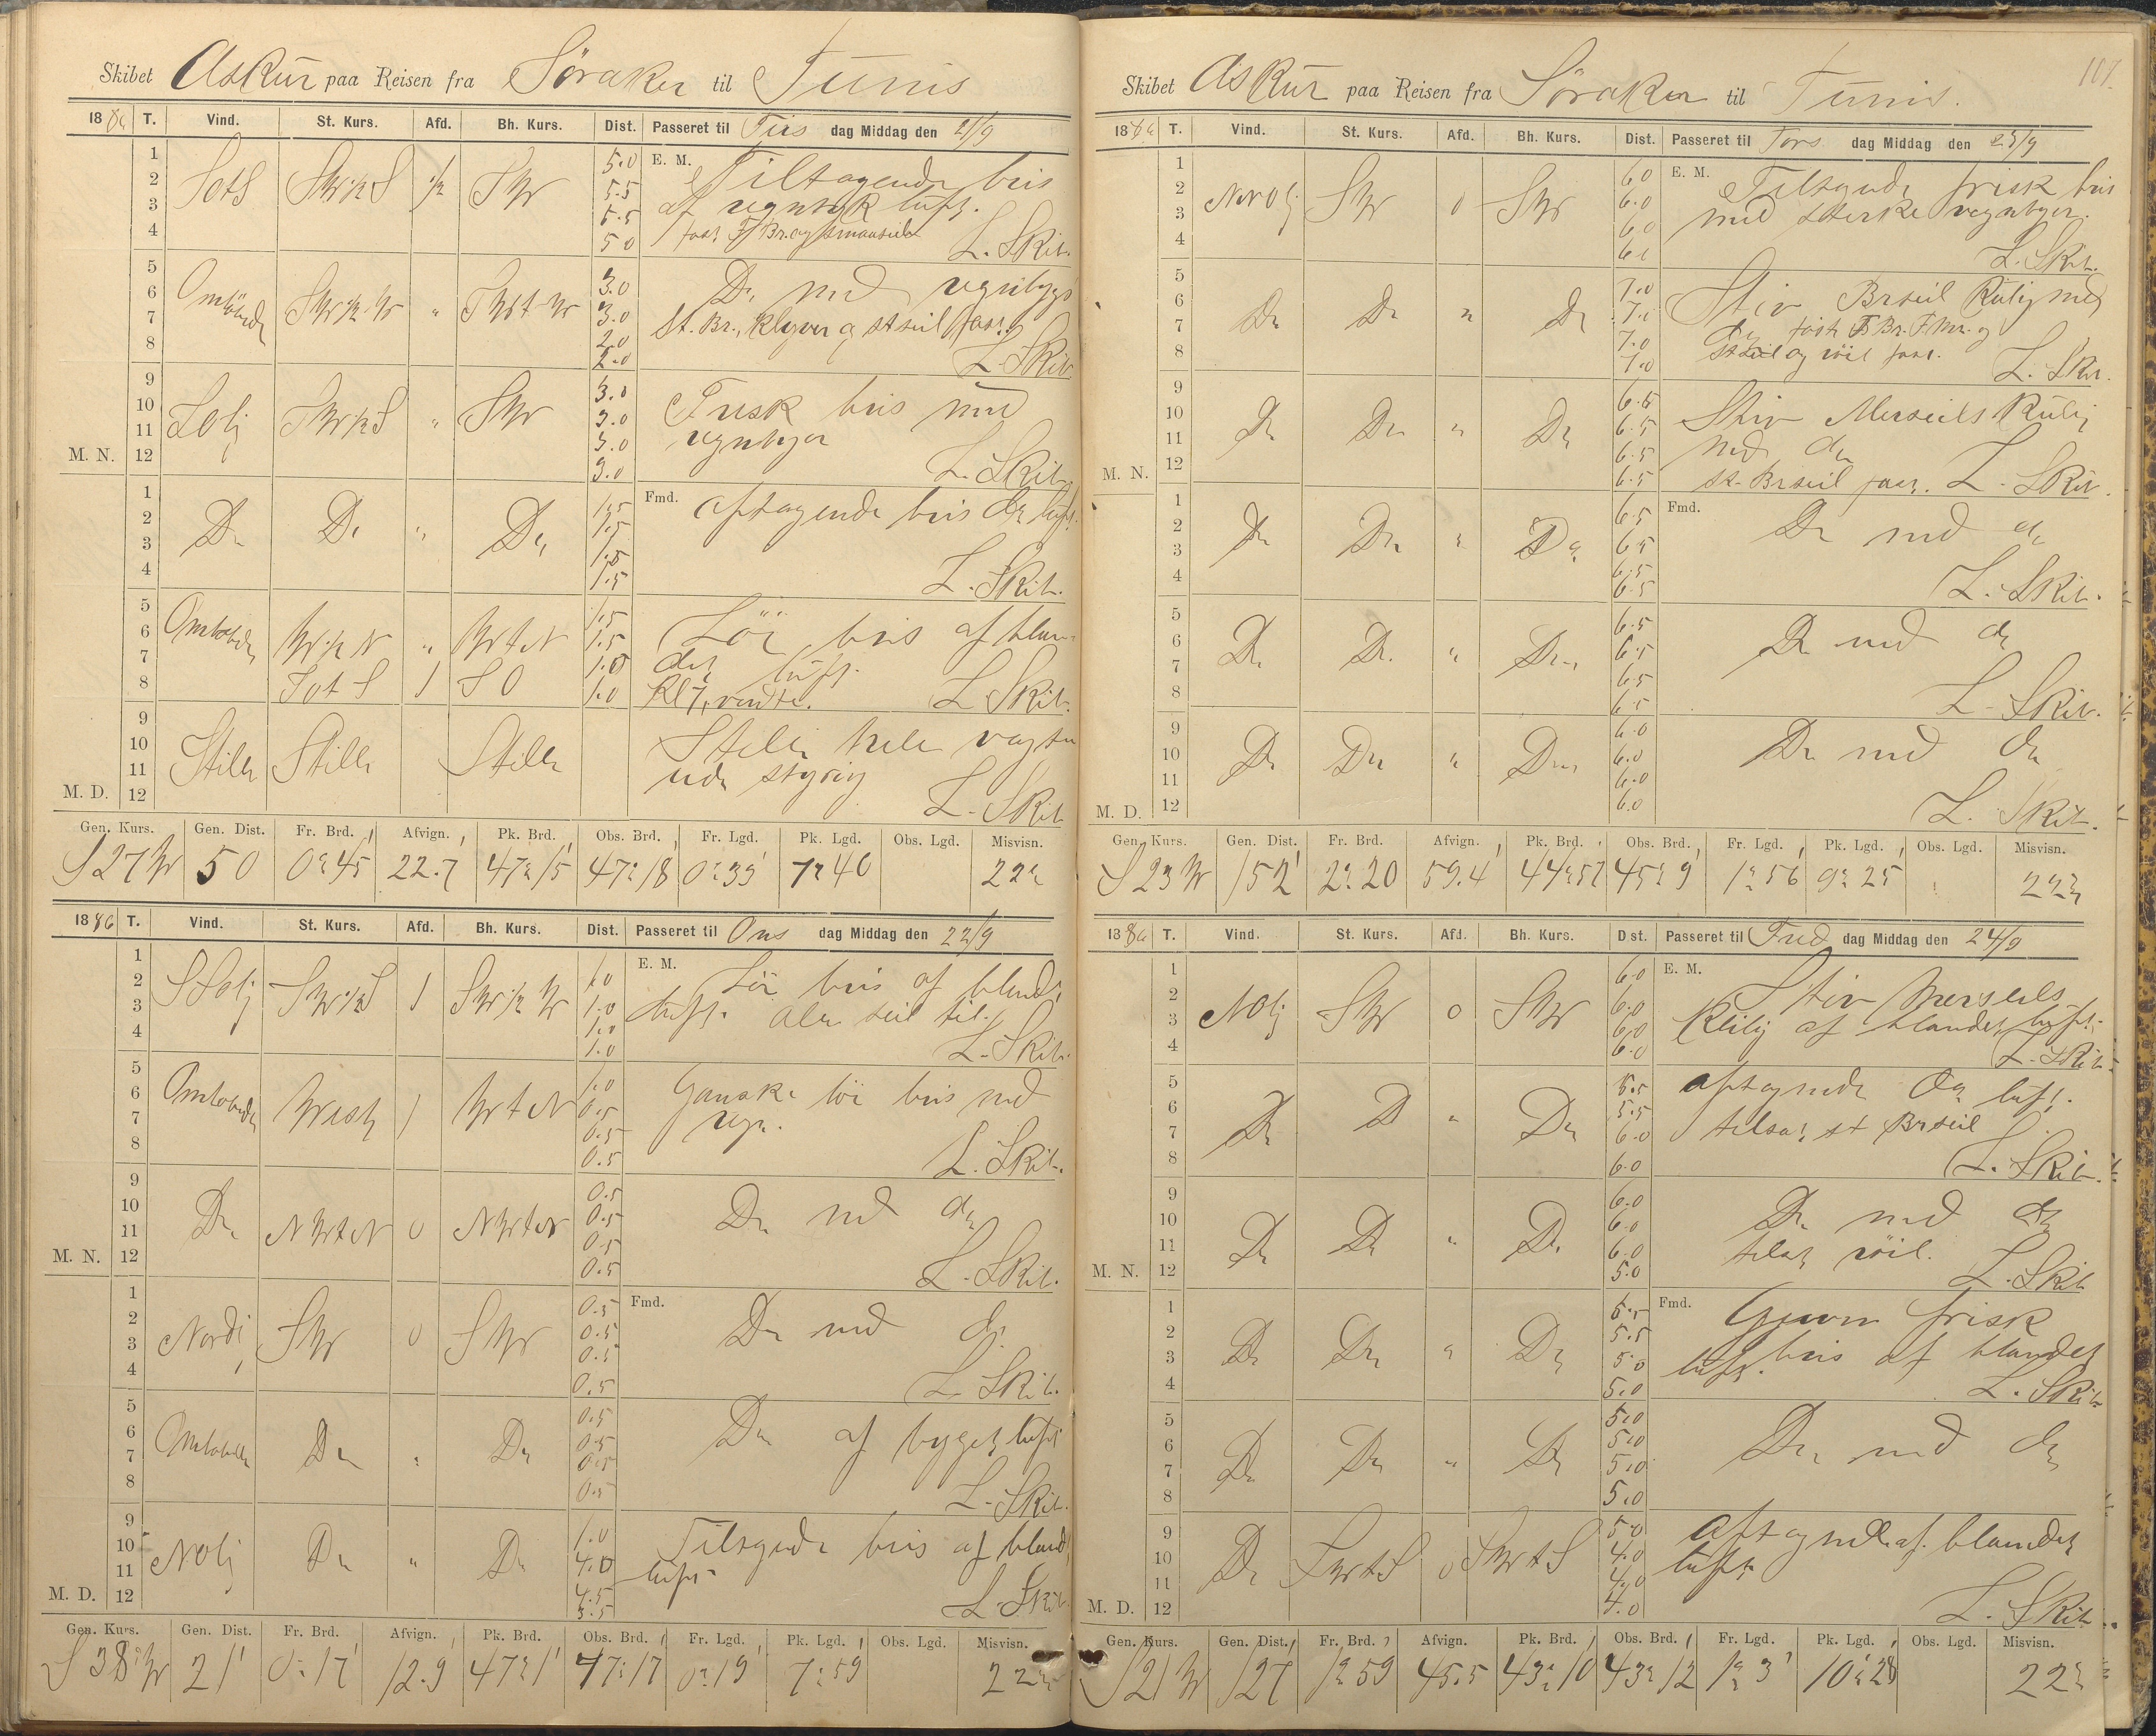 Skibet Askur paa Reisen fra Söraker til Tunis
1886 T. Vind. St. Kurs. Afd. Bh. Kurs. Dist. Passeret til Tirs dag Middag den 21/9
1 2 3 4 SotS SW½S ½ SW 5.0 5.5 5.5 5.0
E. M. Tiltagende bris
af regntyk luft.
fast F Br. og smaaseil
L. Skib.
5 6 7 8 Omlöbende SW½W " 3.0 3.0 2.0 2.0
Do med regnbyger
St. Br., Klyver og stseil fast
L. Skib
9 10 11 12 SOlj SW½S " SW 3.0 3.0 3.0 3.0
M. N.
Frisk bris med
regnbyger
L. Skib
1 2 3 4 Do Do " Do 1.5 1.5 1.5 1.5
Fmd. aftagende bris do luft.
L. Skib.
5 6 7 8 Omlobende W½N " WtN 1.5 1.5 1.0 1.0
SotS 1 SO
Löi bris af blan-
det luft.
Kl 7, vendte.
L Skib.
9 10 11 12 Stille Stille Stille
M. D.
Stille hele vagten
uden styring
L. Skib
Gen. Kurs. Gen. Dist. Fr. Brd. Afvign. Pk. Brd. Obs. Brd. Fr. Lgd. Pk. Lgd. Obs. Lgd. Misvisn.
S 27 W 50 0° 45' 22.7 47° 15' 47° 18 0° 33' 7° 40 22°
1886 T. Vind. St. Kurs. Afd. Bh. Kurs. Dist. Passeret til Ons dag Middag den 22/9
1 2 3 4 SSOlj SW½S 1 SW½W 1.0 1.0 1.0 1.0
E. M. Löi bris af blandet
luft. alle seil til.
L. Skib.
5 6 7 8 Omlobende West 1 WtN 1.0 0.5 0.5 0.5
Ganske löi bris med
regn.
L. Skib.
9 10 11 12 Do NWtN 0 NWtN 0.5 0.5 0.5 0.5
M. N.
Do med do
L. Skib.
1 2 3 4 Nordl SW 0 SW 0.5 0.5 0.5 0.5
Fmd. Do med do
L. Skib.
5 6 7 8 Omlobende Do " Do 0.5 0.5 0.5 0.5
Do af byget luft
L. Skib.
9 10 11 12 NOlj Do " Do 1.0 4.0 4.5 5.5
M. D.
Tiltagende bris af bland
luft
L Skib
Gen. Kurs. Gen. Dist. Fr. Brd. Afvign. Pk. Brd. Obs. Brd. Fr. Lgd. Pk. Lgd. Obs. Lgd. Misvisn.
S 38° W 21' 0° 17' 12.9 47° 1' 47° 17 0° 19 7° 59 22°
107.
Skibet Askur paa Reisen fra Söraker til Tunis.
1886 T. Vind. St. Kurs. Afd. Bh. Kurs. Dist. Passeret til Tors dag Middag den 23/9
1 2 3 4 NNOlj SW 0 SW 6.0 6.0 6.0 6.0
E. M. Tiltagende frisk bris
med sterke regnbyger.
L. Skib.
5 6 7 8 Do Do " Do 7.0 7.0 7.0 7.0
Stiv Brseil Kuling med
do fast F Br. F. Mr. og
stseil og röil fast.
L. Skib.
9 10 11 12 Do Do " Do 6.5 6.5 6.5 6.5
M. N.
Stiv Merseils Kuling
med do
st. Brseil fast. L. Skib.
1 2 3 4 Do Do " Do 6.5 6.5 6.5 6.5
Fmd. Do med do
L. Skib.
5 6 7 8 Do Do " Do 6.5 6.5 6.5 6.5
Do med do
L. Skib.
9 10 11 12 Do Do " Do 6.0 6.0 6.0 6.0
M. D.
Do med do
L. Skib.
Gen. Kurs. Gen. Dist. Fr. Brd. Afvign. Pk. Brd. Obs. Brd. Fr. Lgd. Pk. Lgd. Obs. Lgd. Misvisn.
S 23 W 152' 2° 20 59.4 44° 57 45° 9' 1° 56 9° 25 22°
1886 T. Vind. St. Kurs. Afd. Bh. Kurs. Dist. Passeret til Fred dag Middag den 24/9
1 2 3 4 NOlj SW 0 SW 6.0 6.0 6.0 6.0
E. M. Stiv Merseils
Kuling af blandet luft.
L. Skib.
5 6 7 8 Do D " Do 5.5 5.5 6.0 6.0
aftagende do luft.
tilsat st Brseil
L. Skib.
9 10 11 12 Do Do " Do 6.0 6.0 6.0 5.0
M. N.
Do med do
tilsat röil.
L. Skib
1 2 3 4 Do Do " Do 5.5 5.5 5.0 5.0
Fmd. Jevn frisk
bris af blandet
luft.
L. Skib
5 6 7 8 Do Do " Do 5.0 5.0 5.0 5.0
Do med do
9 10 11 12 Do SWtS 0 SWtS 5.0 4.0 4.0 4.0
M. D.
aftagende af blandet
luft
L. Skib
Gen. Kurs. Gen. Dist. Fr. Brd. Afvign. Pk. Brd. Obs. Brd. Fr. Lgd. Pk. Lgd. Obs. Lgd. Misvisn.
S 21 W 127 1° 59 45.5 43° 10 43° 12 1° 3' 10° 28 22°